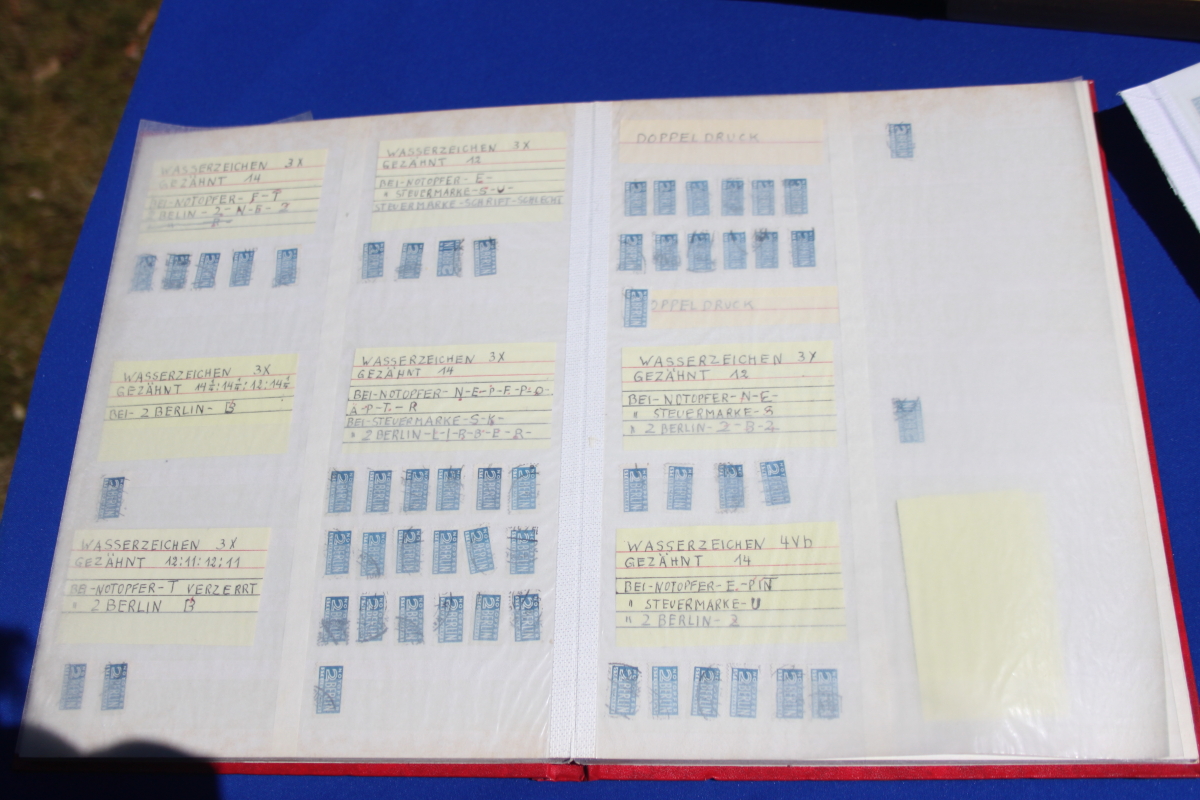 WASSERZEICHEN 3X
GEZÄHNT 14
BEI-NOTOPFER-
2 BERLIN-2-N-E-
WASSERZEICHEN 3X
GEZÄHNT 12
BEI-NOTOPFER-E-
" STEUERMARKE-S-U-
STEUERMARKE-SCHRIFT-SCHLECHT
WASSERZEICHEN 3X
BEI-2 BERLIN-B
WASSERZEICHEN 3X
GEZÄHNT 14
BEI-NOTOPFER-N-E-P-F-P-O-
A-P-T-R
BEI-STEUERMARKE-S-K-
" 2 BERLIN-L-I-B-B-E-R-
WASSERZEICHEN 3X
GEZÄHNT 12:11:12:11
BEI-NOTOPFER-T VERZERRT
" 2 BERLIN B
DOPPELDRUCK
DOPPELDRUCK
WASSERZEICHEN 3X
GEZÄHNT 12
BEI-NOTOPFER-N-E-
" STEUERMARKE-S
" 2 BERLIN-2-B-2
WASSERZEICHEN 4Vb
GEZÄHNT 14
BEI-NOTOPFER-E-PIN
" STEUERMARKE-U
" 2 BERLIN-2